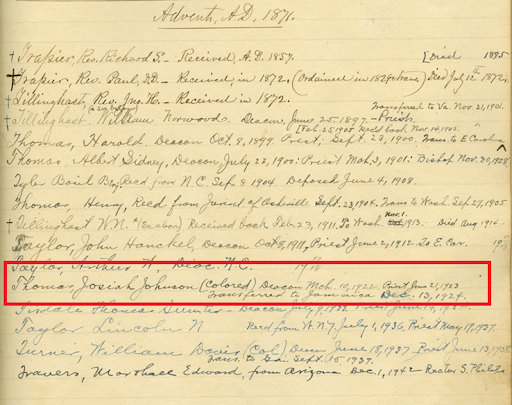 Advent, A.D. 1871.
† Trapier, Rev. Richard S. - Received, A.D. 1857. [Died 1895
† Trapier, Rev. Paul, D.D. - Received, in 1872. (Ordained in 1829 + trans.) Died July 12th 1872.
† Tillinghast, Rev. Jno. H. - Received in 1872.
Transferred to Va. Nov. 21, 1901.
† Tillinghast, William Norwoods. Deacon, June 25, 1899. - Priest
[Feb. 25, 1905 Rec'd back Nov. 14, 1902.
Thomas, Harold. Deacon Oct. 8, 1899. Priest, Sept. 23, 1900. Trans. to E. Carolina
Thomas, Albert Sidney, Deacon, July 22, 1900: Priest Mch. 3, 1901: Bishop Nov. 30, 1928
Tyler Basil Rec'd from N.C. Sep. 9 1904. Deposed June 4, 1908.
Thomas, Henry, Recd from Asheville Sept. 23, 1904. Trans. to Wash. Sep. 29, 1905
† Tillinghast W.N. Received back Feb. 23, 1911. To Wash. Nov. 1. 1913. Died Aug 1914.
Taylor, John Hanckel, Deacon Oct 8, 1911, Priest June 2, 1912. To E. Car.
Taylor, Arthur W. Deac. N.C.
Thomas Josiah Johnson (Colored) Deacon Mch. 10, 1922. Priest June 21, 1923
Transferred to Jamaica Dec. 13, 1924.
Tisdale Thomas Sumter - Deacon July 9, 1932 Priest June 14,
Taylor Lincoln N Recd from W. N.Y, July 1, 1936, Priest May 19, 1937.
Turner, William (Col) Deacon June 18, 1937 - Priest June 13, 1938
Trans. to Ga. Sept. 15 1937.
Travers, Marshall Edward, from Arizona Dec. 1, 1942 - Rector S. Philips